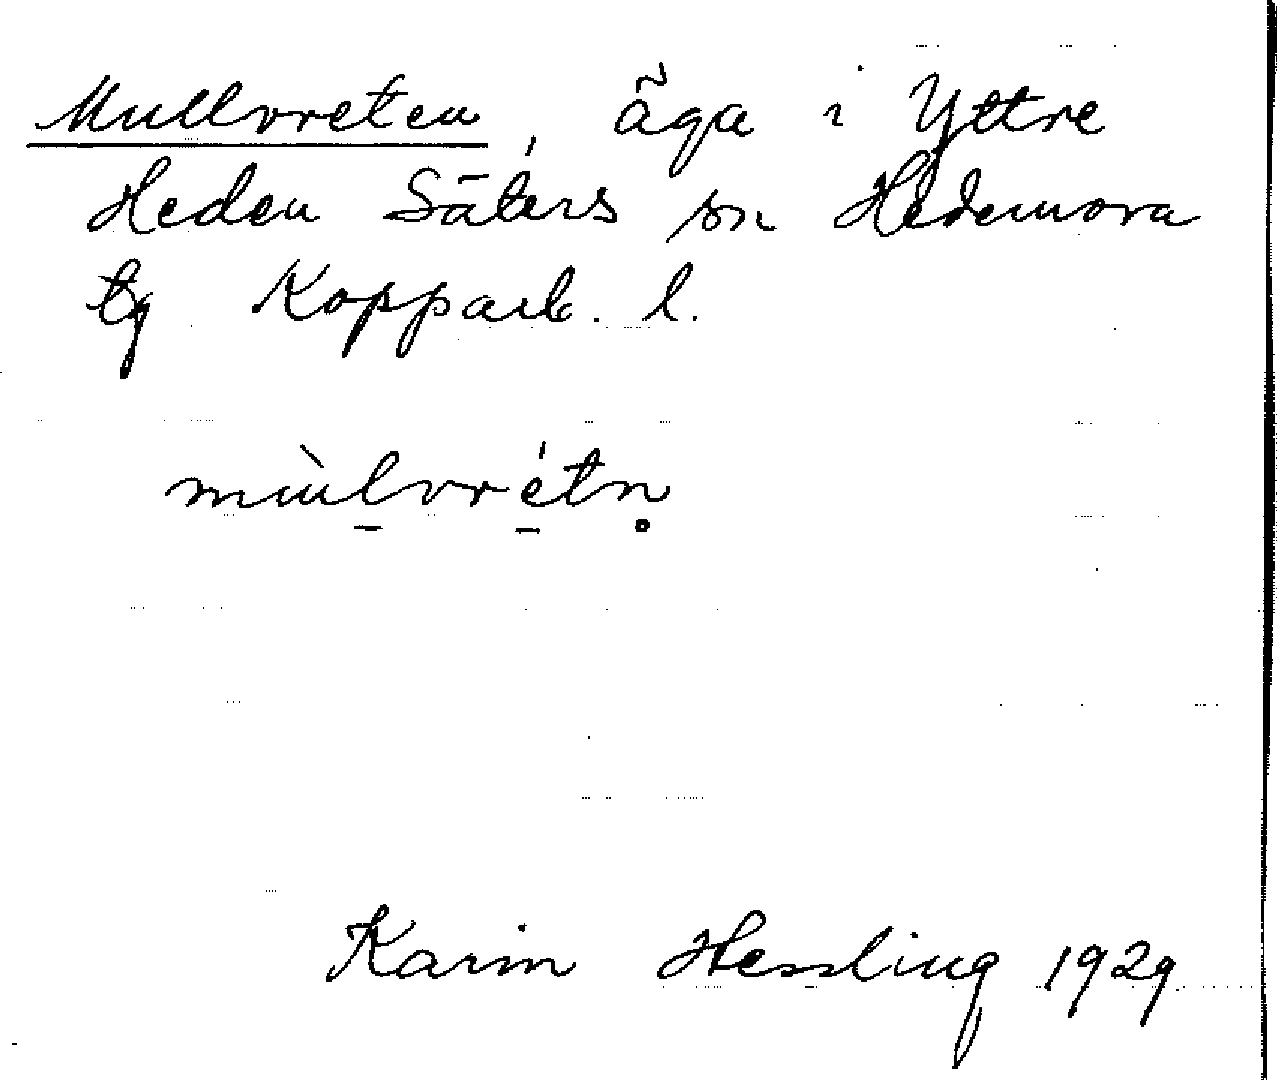 Mullvreten, äga i Yttre
Heden Säters sn Hedemora
tg Kopparb. l.
mùl̲vré̲tn̥
Karin Hessling 1929